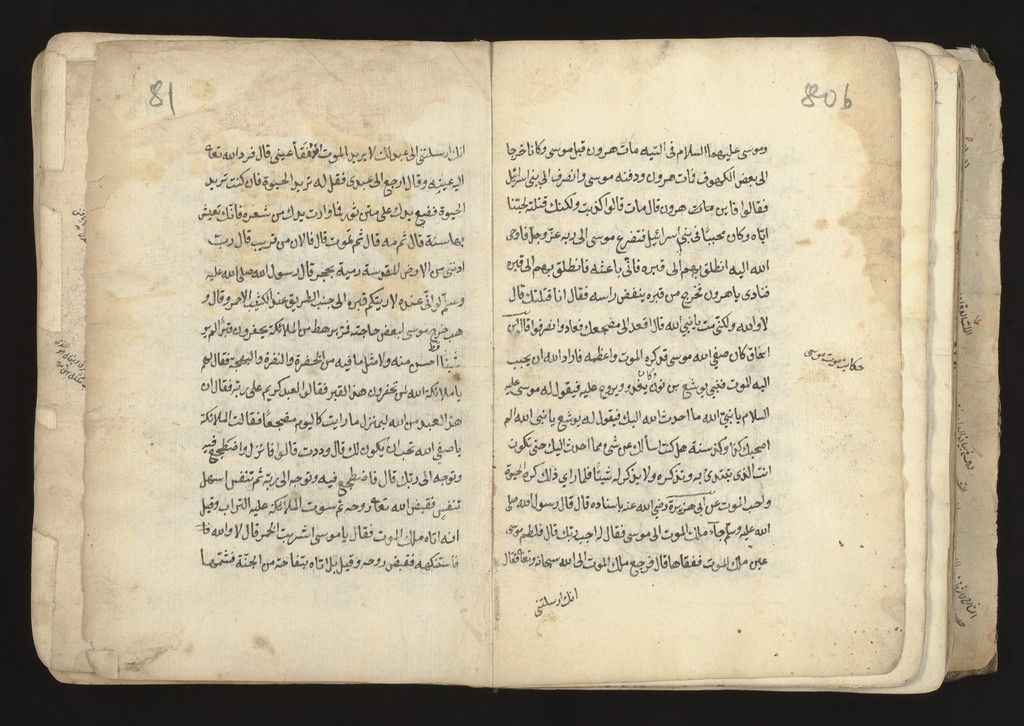 80b
وموسى عليهما السلام فى التيه مات هرون قبل موسى وكانا خرجا
الى بعض الكهوف فمات هرون ودفنه موسى وانصرف الى بنى اسرائل
فقالوا فاين هرون قال مات قالوا كذبت ولكنك قتلته لحبنا
اياه وكان محببًا فى بنى اسرائيل فتضرع موسى الى ربه عز وجل فاوحى
الله اليه انطلق بهم الى قبره فانى باعثه فانطلق بهم الى قبره
فنادى ياهرون فخرج من قبره ينفض راسه فقال انا قتلتك قال
لا والله ولكنى مت يا نبى الله قال فعد الى مضجعك فعاد وانصرفوا قال ابن
اسحاق كان صفى الله موسى قد كره الموت واعظمه فاراد الله ان يحبب
اليه الموت فنبى يوشع بن نون وكان يغدو ويروح عليه فيقول له موسى عليه
السلام يا نبى الله ما احدث الله اليك فيقول له يوشع يا نبى الله الم
اصحبك كذا وكذا سنة هل كنت اسالك عن شى مما احدث اليك حتى تكون
انت الذى تبتدى به وتذكره ولا يذكر له شيئا فلما راى ذلك كره الحيوة
واحب الموت عن ابى هريرة رضى الله عنه باسناده قال قال رسول الله صلى
الله عليه وسلم جاء ملك الموت الى موسى فقال له اجب ربك قال فلطم موسى
عين ملك الموت ففقاها قال فرجع ملك الموت الى الله سبحانه وتعالى فقال
انك ارسلتنى
حكايت موت موسى
81
انك ارسلتنى الى عبد لك لا يريد الموت وقد فقأ عينى قال فرد الله تعا
اليه عينه وقال ارجع الى عبدى فقل له تريد الحيوة فان كنت تريد
الحيوة فضع يدك على متن ثور فما وارت يدك من شعره فانك تعيش
بها سنة قال ثم مه قال ثم تموت قال فالان من قريب قال رب
ادننى من الارض المقدسة رمية بحجر قال رسول الله صلى الله عليه
وسلم لو انى عنده لاريتكم قبره الى جنب الطريق عند الكثيب الاحمر وقال و
هب خرج موسى لبعض حاجته فمر برهط من الملائكة يحفرون قبرًا لم ير
شيئا قط احسن منه ولا مثل ما فيه من الخضرة والنضرة والبهجة فقال لهم
يا ملائكة الله لمن تحفرون هذا القبر فقالوا لعبد كريم على ربه فقال ان
هذا العبد من الله لبمنزل ما رايت كاليوم مضجعا فقالت الملائكة
يا صفى الله تحب ان يكون لك قال وددت قالوا فانزل واضطجع فيه
وتوجه الى ربك قال فاضطجع فيه وتوجه الى ربه ثم تنفس اسهل
تنفس فقبض الله تعا روحه ثم سوت الملائكة عليه التراب وقيل
انه اتاه ملك الموت فقال يا موسى اشربت الخمر قال لا والله
فاستنكهه فقبض روحه وقيل بل اتاه بتفاحة من الجنة فشمها